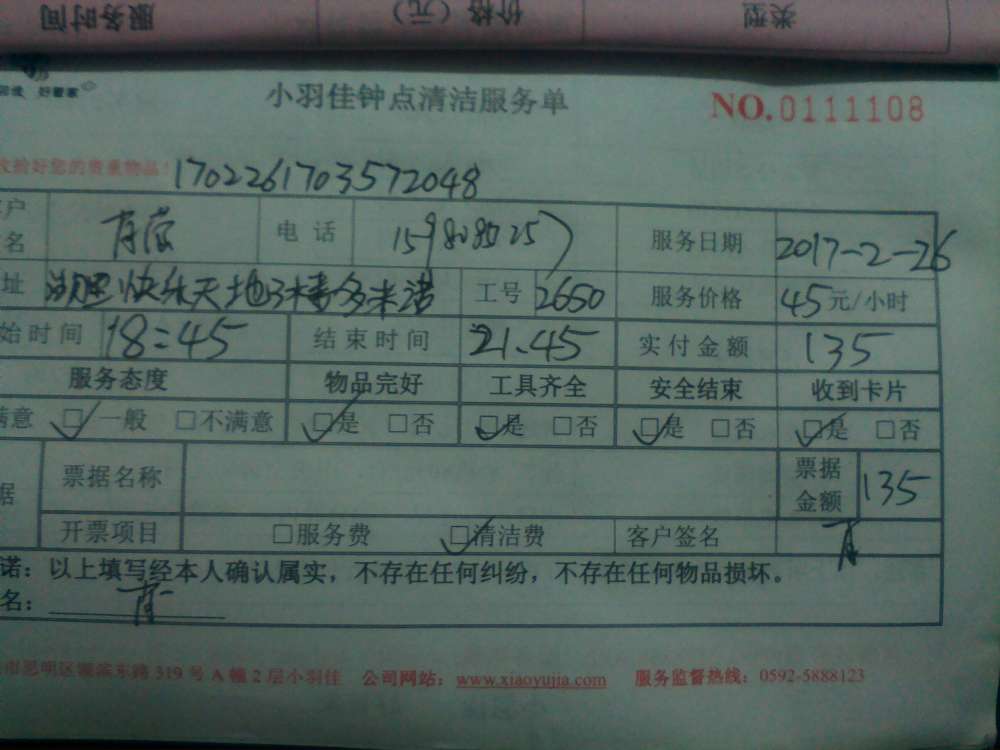 服务时间 价格（元） 类型
好管家
小羽佳钟点清洁服务单 NO.0111108
收拾好您的贵重物品！ 1702261703572048
户名 电话 服务日期 2017-2-26
址 快乐天地 多米诺 工号 2650 服务价格 45元/小时
始时间 18:45 结束时间 21.45 实付金额 135
服务态度 物品完好 工具齐全 安全结束 收到卡片
满意 □一般 □不满意 □是 □否 □是 □否 □是 □否 □是 □否
据 票据名称 票据金额 135
开票项目 □服务费 □清洁费 客户签名
诺：以上填写经本人确认属实，不存在任何纠纷，不存在任何物品损坏。
名：
市思明区湖滨东路 319 号 A 幢 2 层小羽佳 公司网站：www.xiaoyujia.com 服务监督热线：0592-5888123